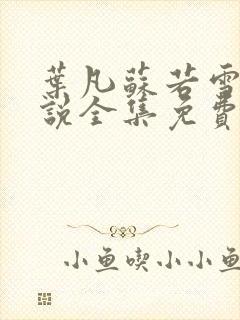 葉凡蘇若雪
說全集免費
小鱼喫小小鱼